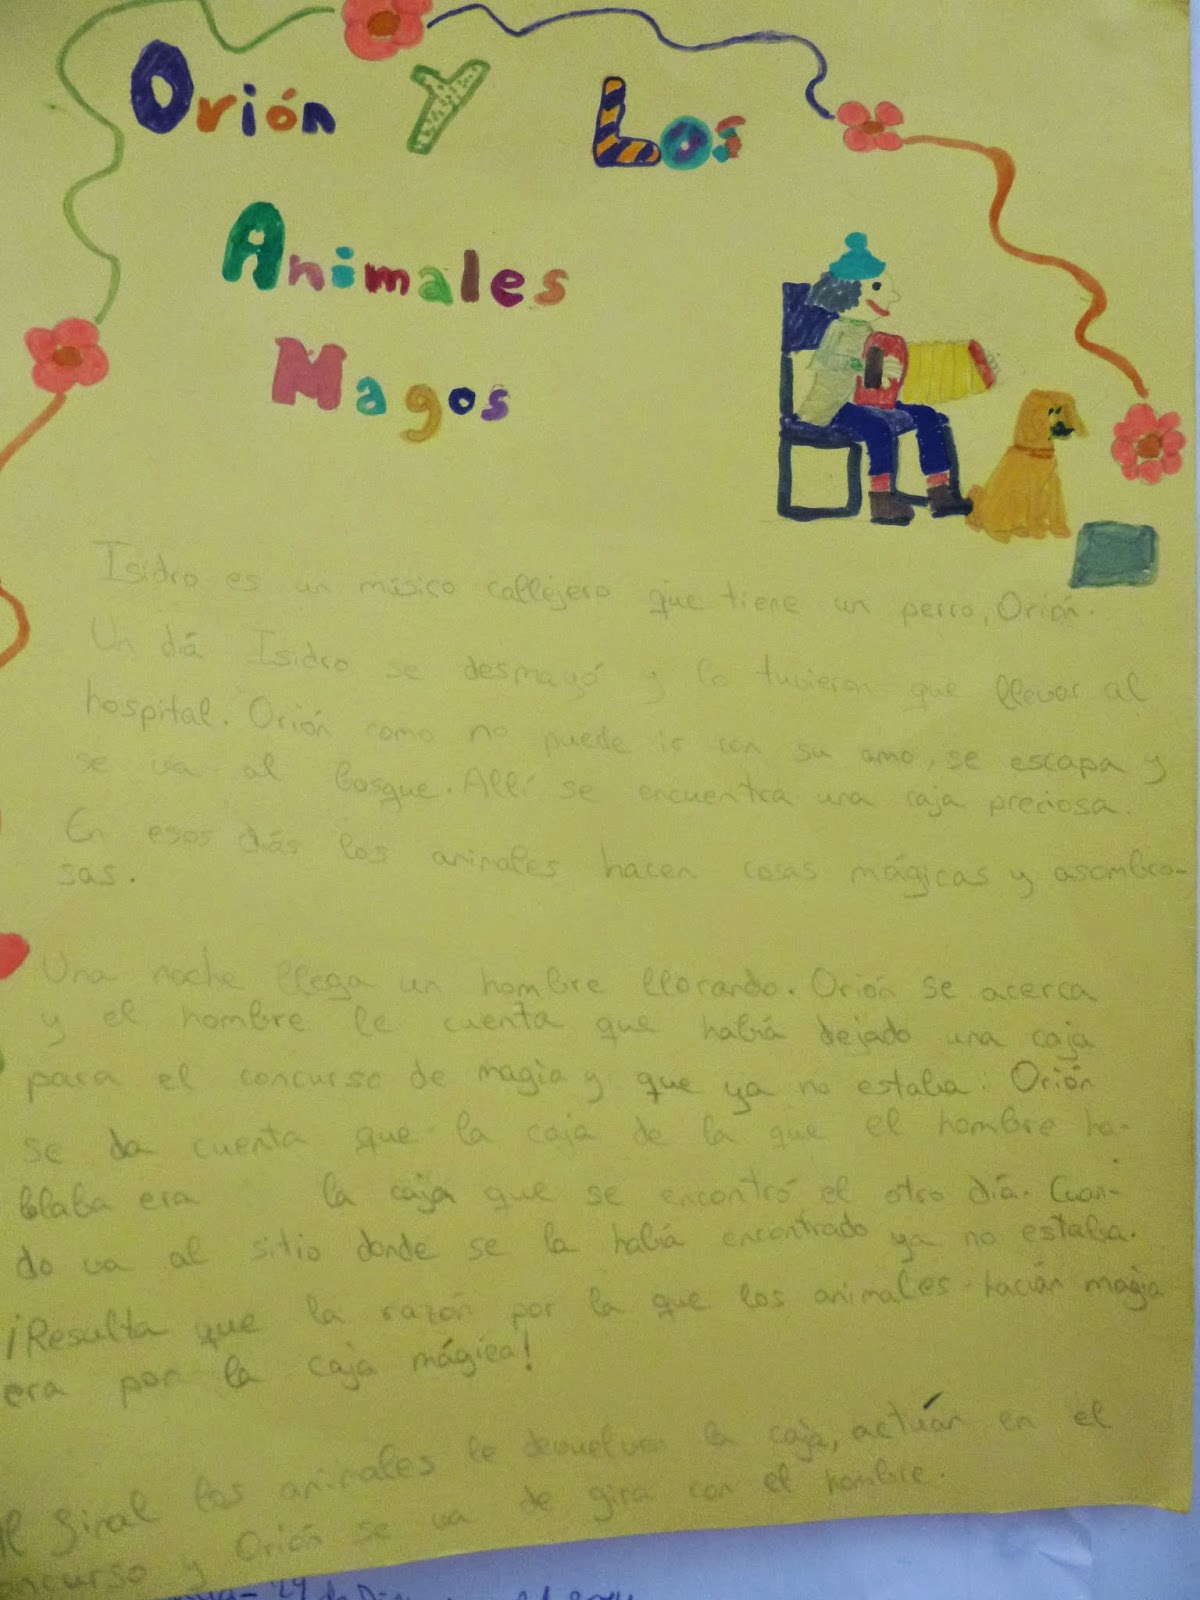 Orión Y Los
Animales
Magos
Isidro es un músico callejero que tiene un perro, Orión.
Un día Isidro se desmayó y lo tuvieron que llevar al
hospital. Orión como no puede ir con su amo, se escapa y
se va al bosque. Allí se encuentra una caja preciosa.
En esos días los animales hacen cosas mágicas y asombro-
sas.
Una noche llega un hombre llorando. Orión se acerca
y el hombre le cuenta que había dejado una caja
para el concurso de magia y que ya no estaba. Orión
se da cuenta que la caja de la que el hombre ha-
blaba era la caja que se encontró el otro día. Cuan-
do va al sitio donde se la había encontrado ya no estaba.
¡Resulta que la razón por la que los animales hacían magia
era por la caja mágica!
Al final los animales le devuelven la caja, actúan en el
concurso y Orión se va de gira con el hombre.